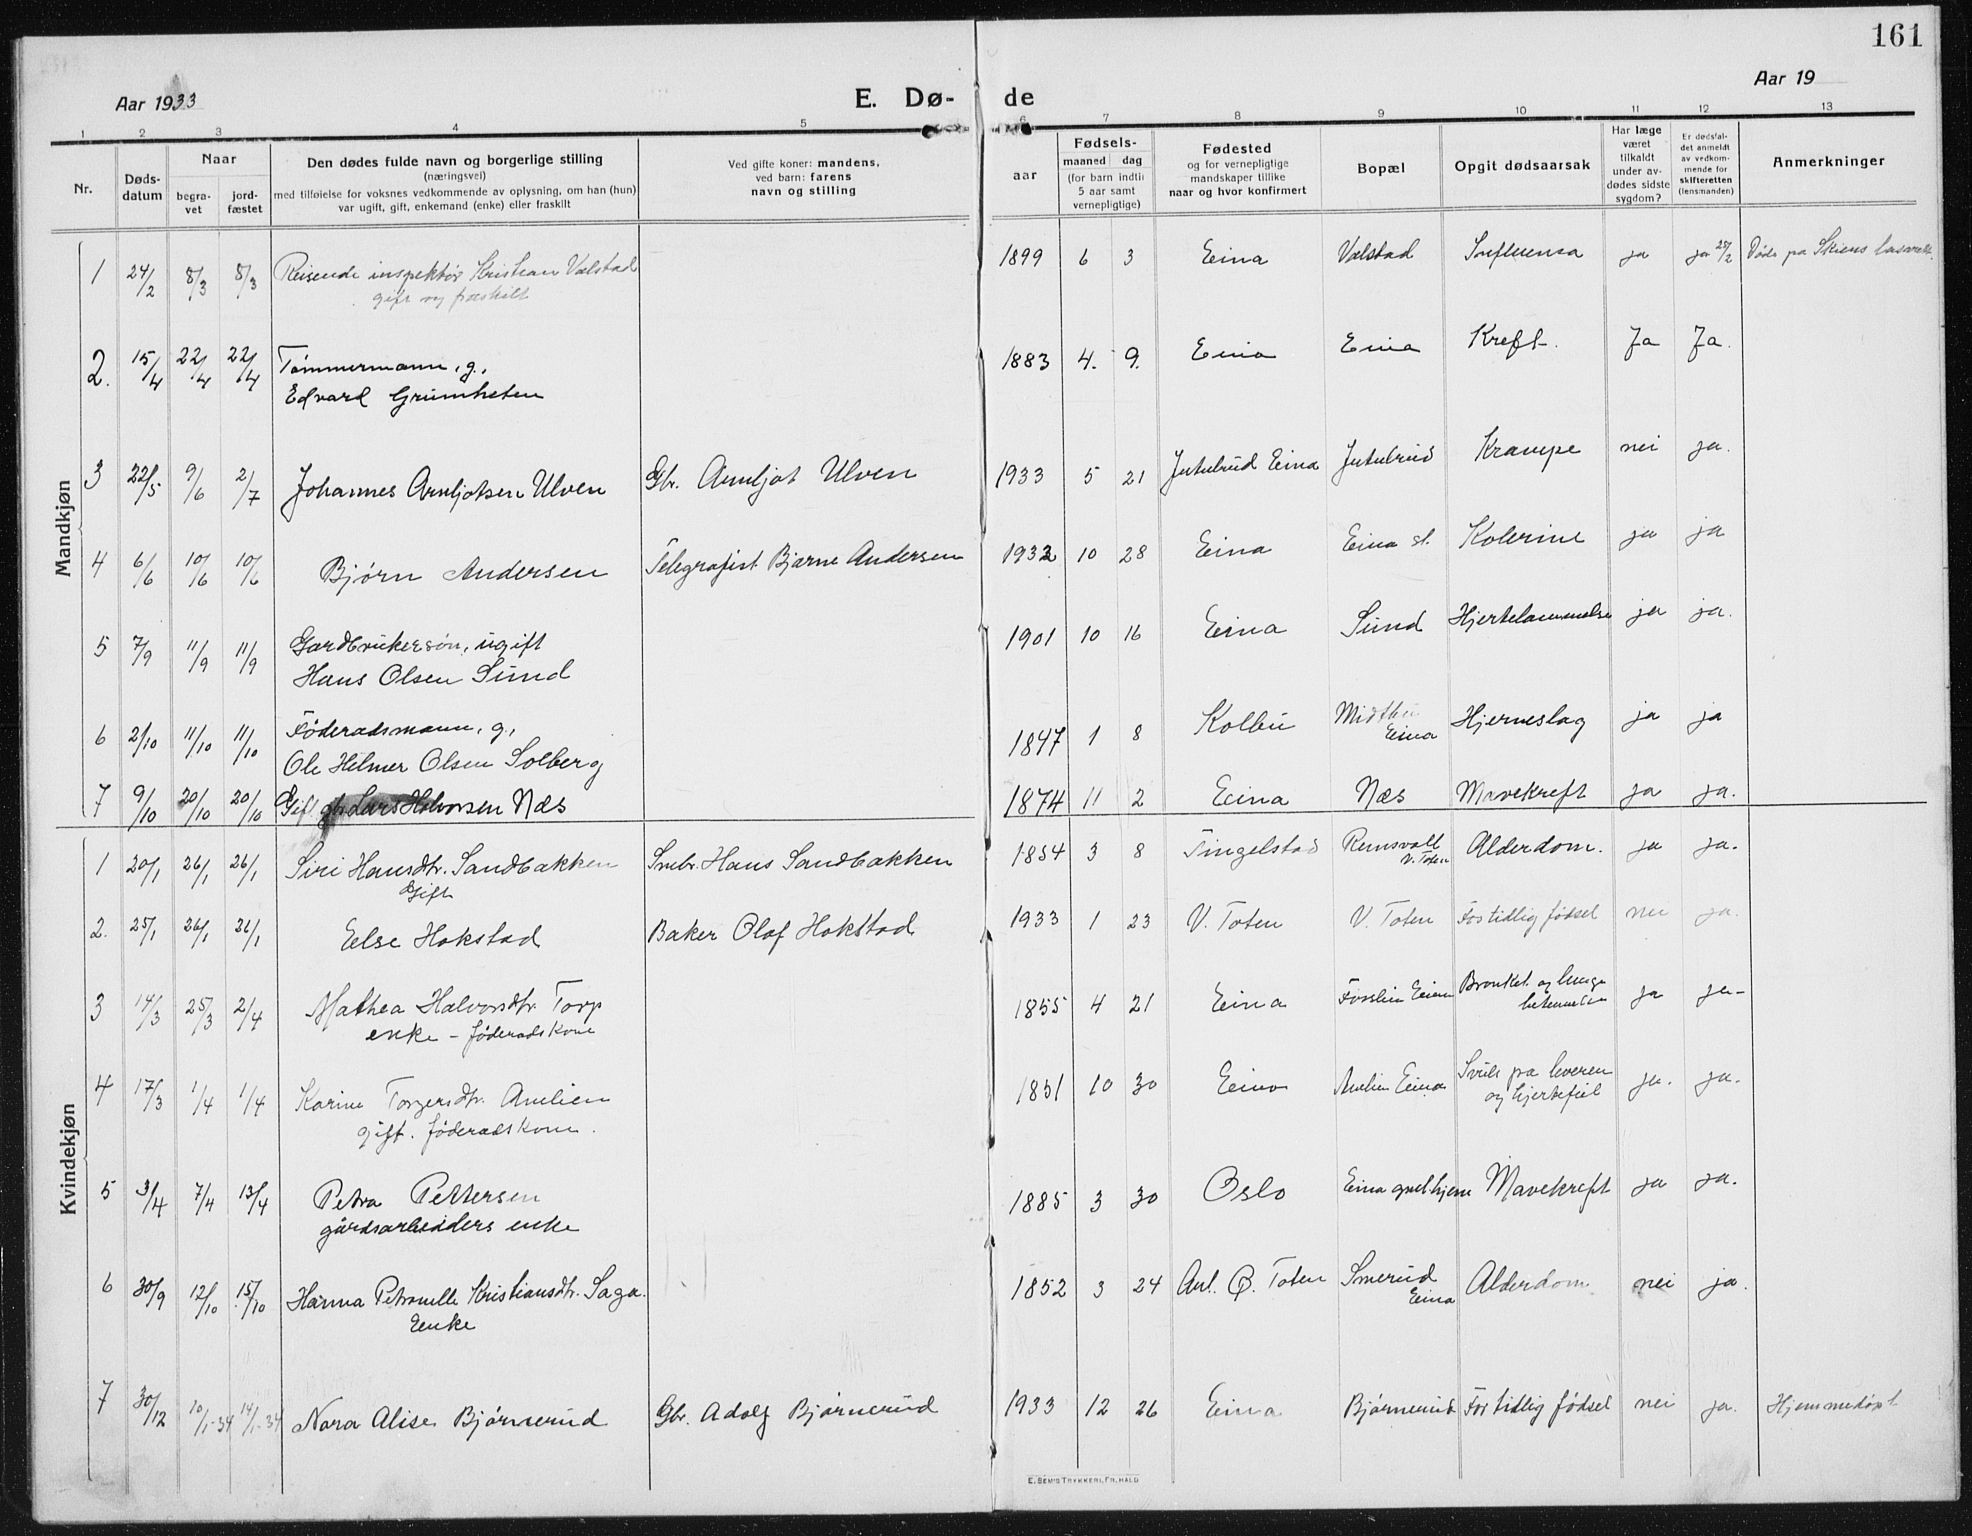 161
Aar 1933
E. Dø-
de
Aar 19
1 2 3 4 5 6 7 8 9 10 11 12 13
Nr.
Døds-
datum
Naar
begra-
vet
jord-
fæstet
Den dødes fulde navn og borgerlige stilling
(næringsvei)
med tilføielse for voksnes vedkommende av oplysning, om han (hun)
var ugift, gift, enkemand (enke) eller fraskilt
Ved gifte koner: mandens,
ved barn: farens
navn og stilling
Fødsels-
aar
maaned dag
(for barn indtil
5 aar samt
vernepligtige)
Fødested
og for vernepligtige
mandskaper tillike
naar og hvor konfirmert
Bopæl
Opgit dødsaarsak
Har læge
været
tilkaldt
under av-
dødes sidste
sygdom?
Er dødsfal-
det anmeldt
av vedkom-
mende for
skifteretten
(lensmanden)
Anmerkninger
Mandkjøn
1 24/2 8/3 8/3 Reisende inspektør Kristian Valstad 1899 6 3 Eina Valstad Influensa ja ja 25/2 Døde pa Skiens
gift og fraskilt
2. 15/4 22/4 22/4 Tømmermann, g., 1883 4. 9. Eina Eina Kreft. Ja Ja.
Edvard Grümheten
3 22/5 9/6 2/7 Johannes Arnljotsen Ulven Gbr. Arnljot Ulven 1933 5 21 Jutulrud Eina Jutulrud Krampe nei ja.
4 6/6 10/6 10/6 Bjørn Andersen Telegrafist Bjarne Andersen 1932 10 28 Eina Eina st. Kolerine ja ja
5 7/9 11/9 11/9 Gardbrukersøn, ugift 1901 10 16 Eina Sünd Hjertelammelse ja ja.
Hans Olsen Sünd
6 2/10 11/10 11/10 Føderadsmann, g., 1847 1 8 Kolbu Midtbu Eina Hjerneslag ja ja
Ole Helmer Olsen Solberg
7 9/10 20/10 20/10 Gift gbr. Lars Halvorsen Næs 1874 11 2 Eina Næs Mavekreft ja ja.
Kvindekjøn
1 20/1 26/1 26/1 Siri Hansdtr. Sandbakken Smbr. Hans Sandbakken 1854 3 8 Tingelstad Reinsvoll V. Toten Alderdom. ja ja.
Gift
2. 25/1 26/1 26/1 Else Hokstad Baker Olaf Hokstad 1933 1 23 V. Toten V. Toten For tidlig fødsel nei ja.
3 14/3 25/3 2/4 Mathea Halvorsdtr. Torp 1855 4 21 Eina Fosslien Eina Bronkit. og lunge ja ja-
enke - føderadskone betennelse
4 17/3 1/4 1/4 Karine Torgersdtr. Anelien 1851 10 30 Eina Anelien Eina Svuls pa leveren ja. ja.
gift. føderadskone. og hjertefeil
5 3/4 7/4 13/4 Petra Pettersen 1885 3 30 Oslo Eina Mavekreft ja ja.
gårdsarbeiders enke
6 30/9 12/10 15/10 Hanna Petronelle Kristiansdtr. Saga. 1852 3 24 Ant. Ø. Toten Smerud Eina Alderdom. nei ja.
Eenke
7 30/12 10/1-34 14/1-34 Nora Alise Bjørnerud Gbr. Adolf Bjørnerud 1933 12 26 Eina Bjørnerud For tidlig fødsel nei ja. Hjemmedøpt
E. SEM'S TRYKKERI, FR.HALD